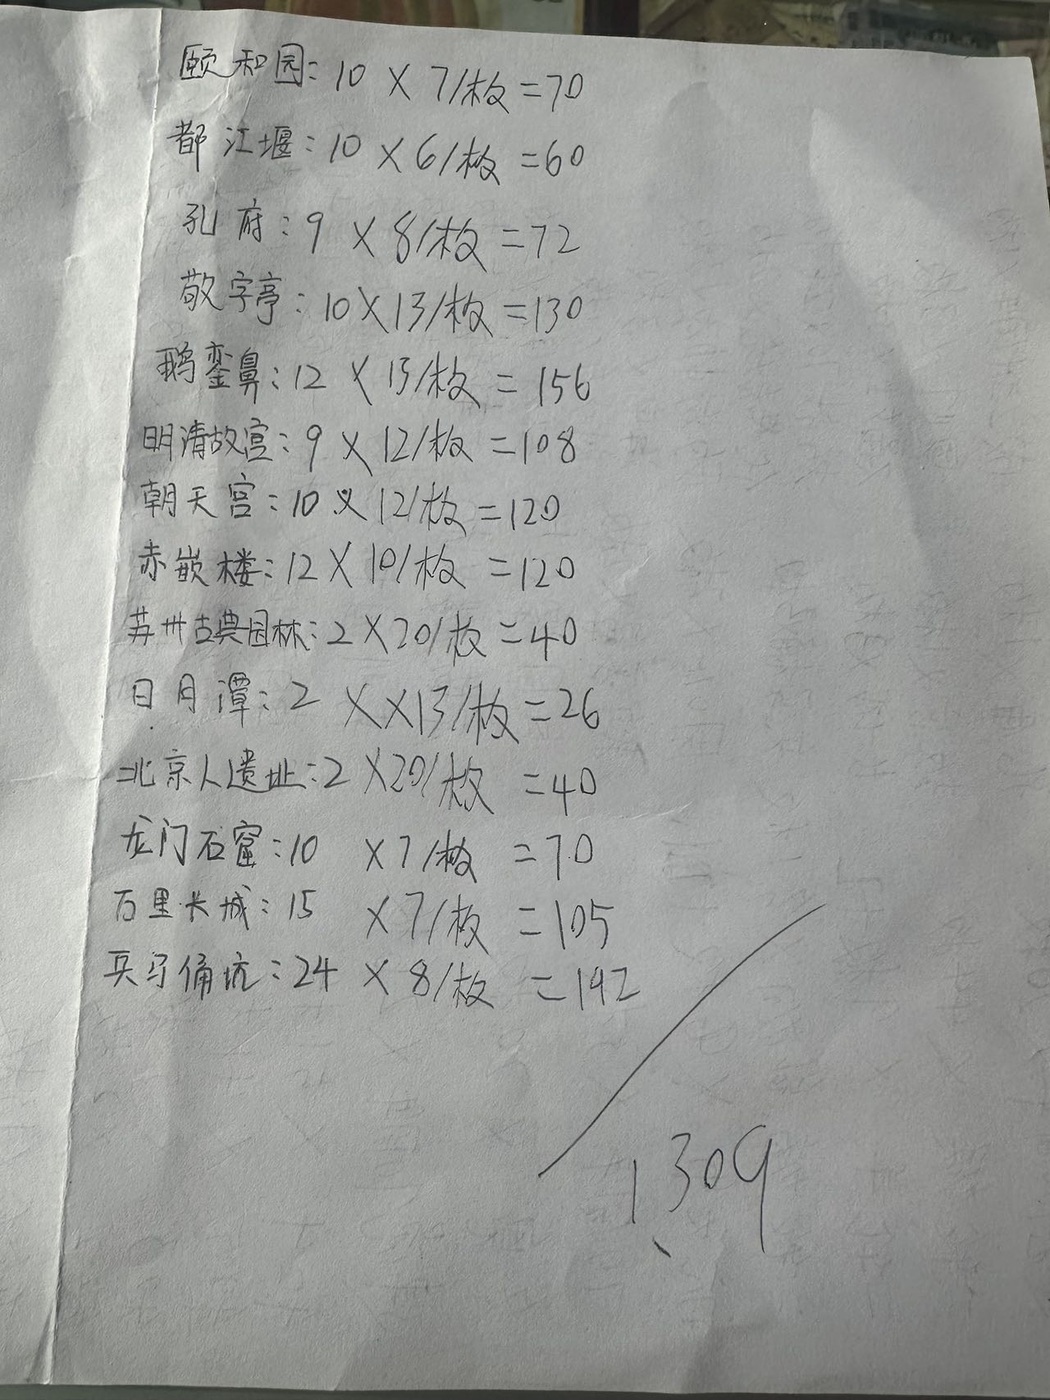 颐和园：10 X 7/枚=70
都江堰：10 X 6/枚=60
孔府：9 X 8/枚=72
敬字亭：10X13/枚=130
鹅銮鼻：12 X 13/枚=156
明清故宫：9 X 12/枚=108
朝天宫：10 X 12/枚=120
赤嵌楼：12 X 10/枚=120
苏州古典园林：2 X20/枚=40
日月潭：2 XX13/枚=26
北京人遗址：2 X20/枚=40
龙门石窟：10 X7/枚=70
万里长城：15 X7/枚=105
兵马俑坑：24 X 8/枚=192
1309